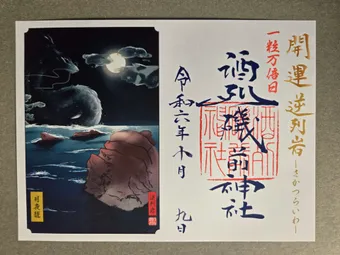 開運逆列岩
ーさかつらいわー
一粒万倍日
酒列磯前神社
令和六年十月 九日